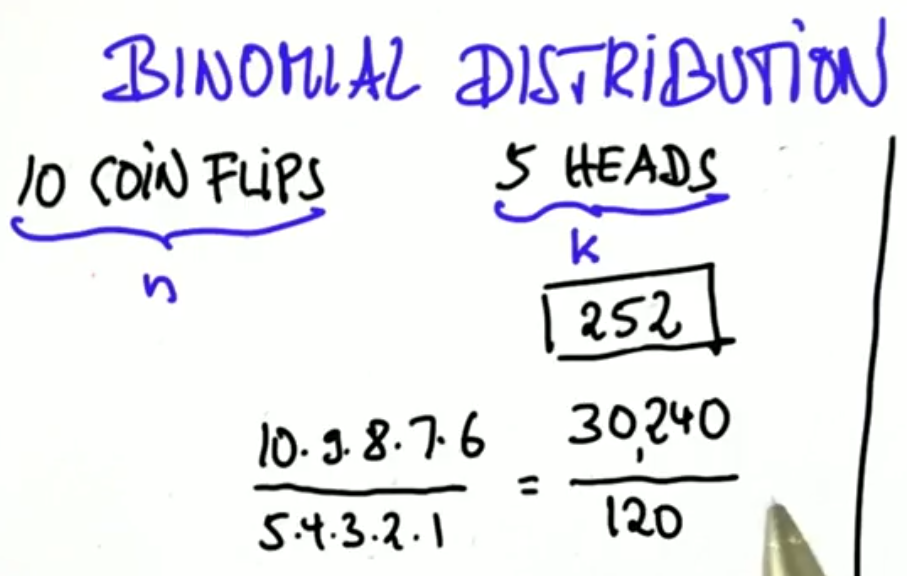 BINOMIAL DISTRIBUTION
10 COIN FLIPS 5 HEADS
n k
252
10·9·8·7·6 / 5·4·3·2·1 = 30,240 / 120